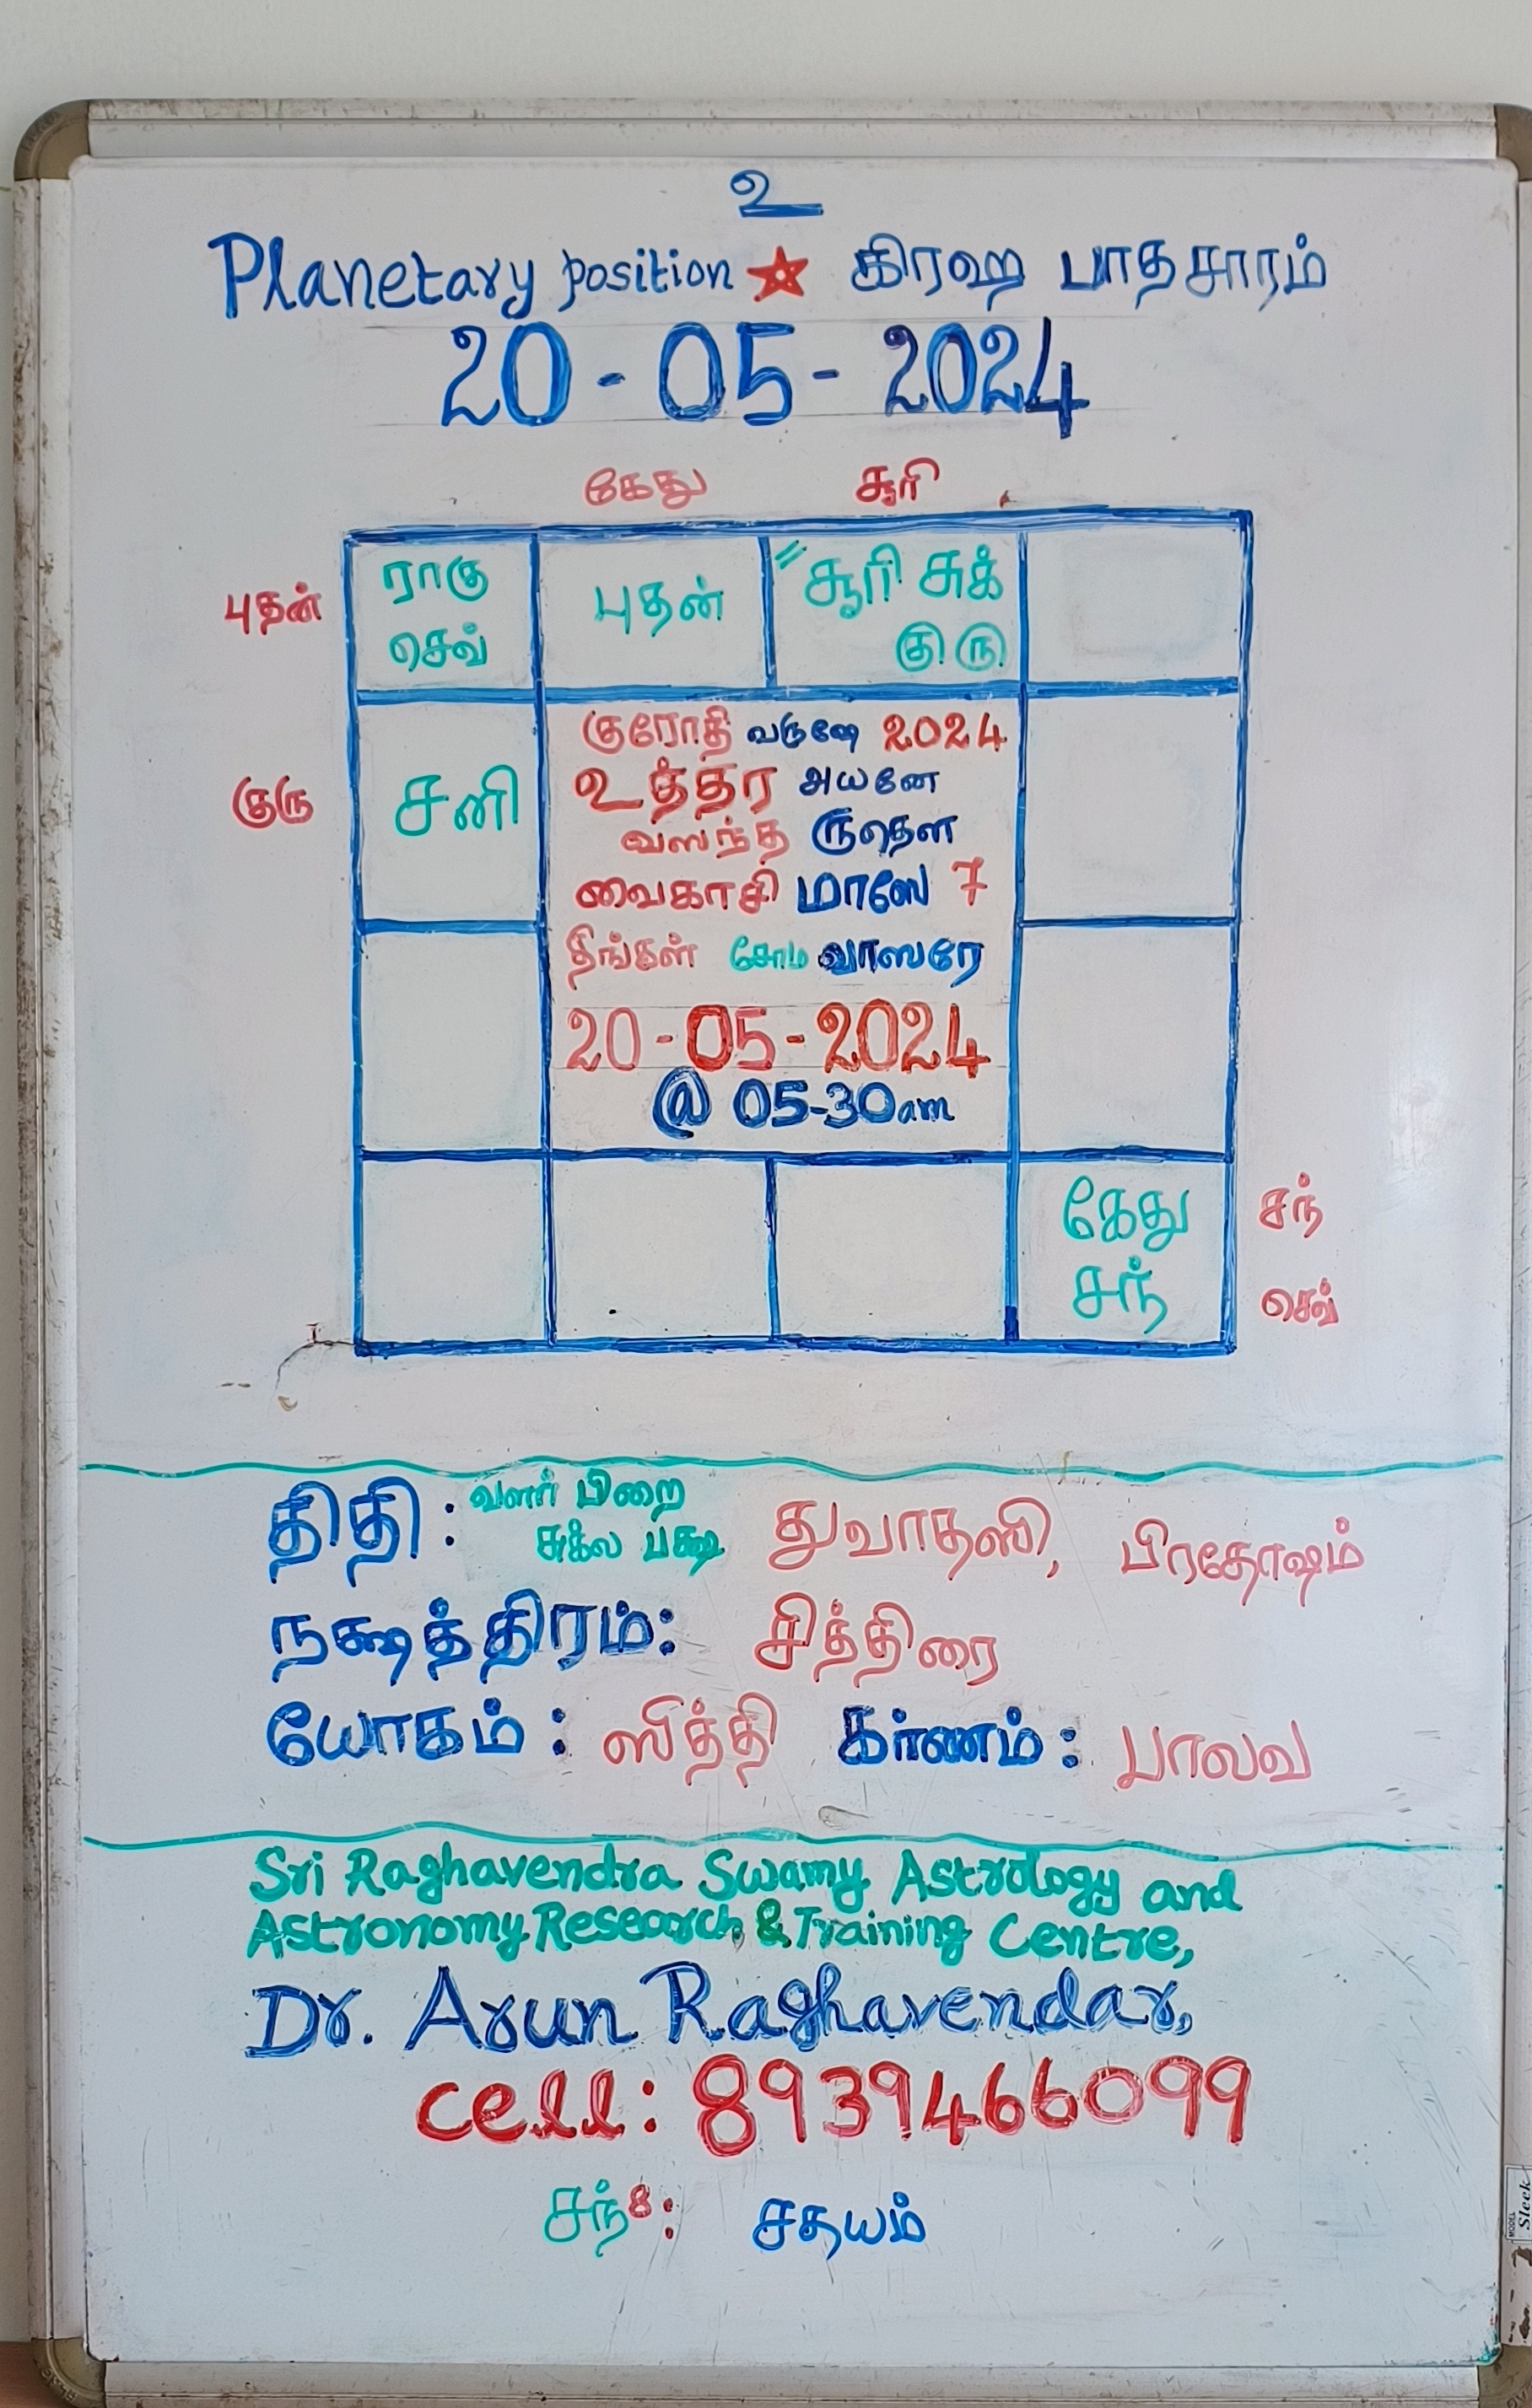 உ
Planetary position ☆ கிரஹ பாதசாரம்
20-05-2024
கேது சூரி
புதன் ராகு செவ் புதன் " சூரி சுக் குரு
குரு சனி
குரோதி வருஷே 2024
உத்தர அயனே
வஸந்த ருதௌ
வைகாசி மாஸே 7
திங்கள் சோம வாஸரே
20-05-2024
@ 05-30am
கேது சந்
சந் செவ்
திதி: வளர் பிறை சுக்ல பக்ஷ துவாதஸி, பிரதோஷம்
நக்ஷத்திரம்: சித்திரை
யோகம்: ஸித்தி கர்ணம்: பாலவ
Sri Raghavendra Swamy Astrology and
Astronomy Research & Training Centre,
Dr. Arun Raghavendar,
cell: 8939466099
சந்8: சதயம்
MODEL Sleek